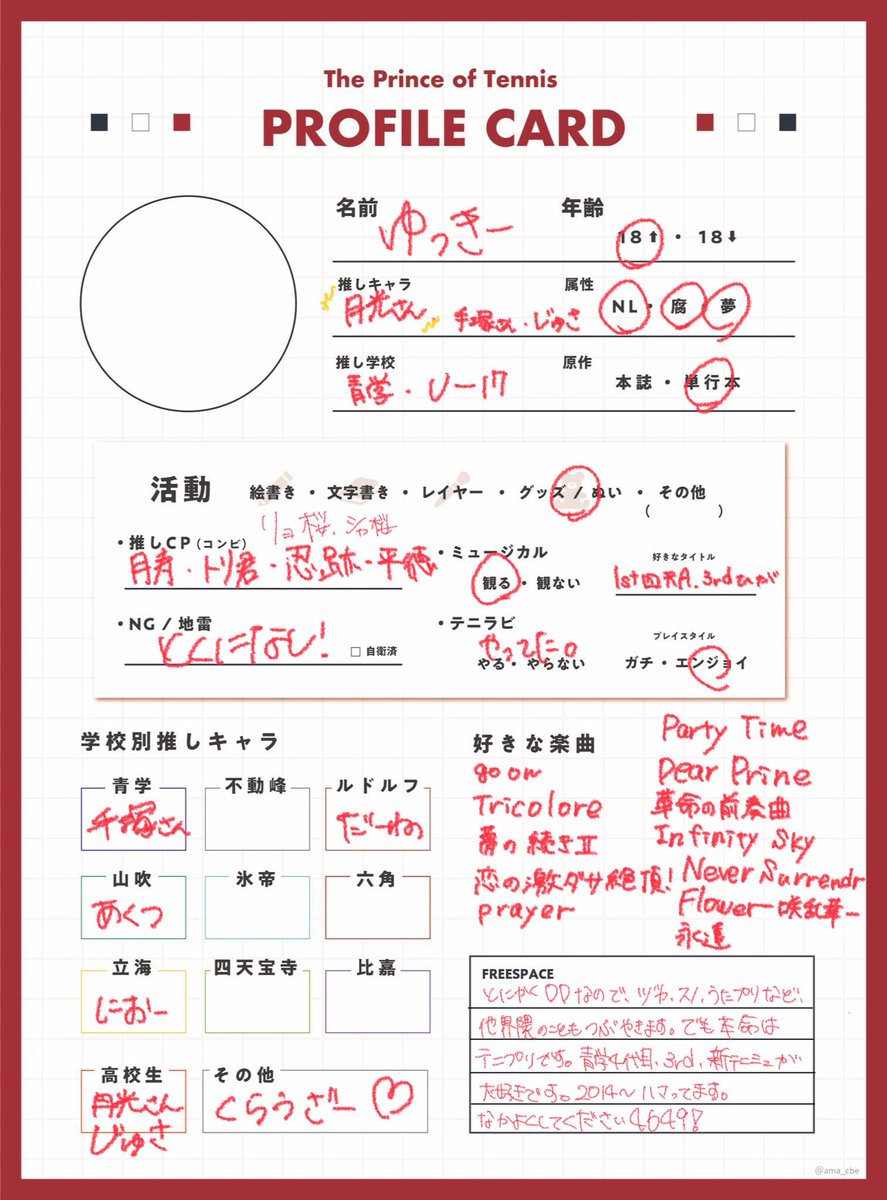 The Prince of Tennis
PROFILE CARD
名前 ゆっきー 年齢 18⬆・18⬇
推しキャラ 月光さん 手塚さん・じゅさ 属性 NL・腐・夢
推し学校 青学・U-17 原作 本誌・単行本
活動 絵書き・文字書き・レイヤー・グッズ/ぬい・その他
( )
リョ桜、シャ桜
・推しCP(コンビ)
月寿・トリ君・忍跡・平徳
・ミュージカル 観る・観ない
好きなタイトル
1st四天A、3rdひが
・NG/地雷
とくになし! □自衛済
・テニラビ
やってた。
やる・やらない
プレイスタイル
ガチ・エンジョイ
学校別推しキャラ
青学 不動峰 ルドルフ
手塚さん だーね
山吹 氷帝 六角
あくつ
立海 四天宝寺 比嘉
におー
高校生 その他
月光さん
じゅさ
くらうざー♡
好きな楽曲
go on
Tricolore
夢の続きII
恋の激ダサ絶頂!
prayer
Party Time
Dear Prine
革命の前奏曲
Infinity Sky
Never Surrendr
Flower-咲乱華-
永遠
FREESPACE
とにかくDDなので、ヅカ、スノ、うたプリなど、
他界隈のこともつぶやきます。でも本命は
テニプリです。青学4代目、3rd、新テニミュが
大好きです。2014～ハマってます。
なかよくしてください4649!
@ama_cbe